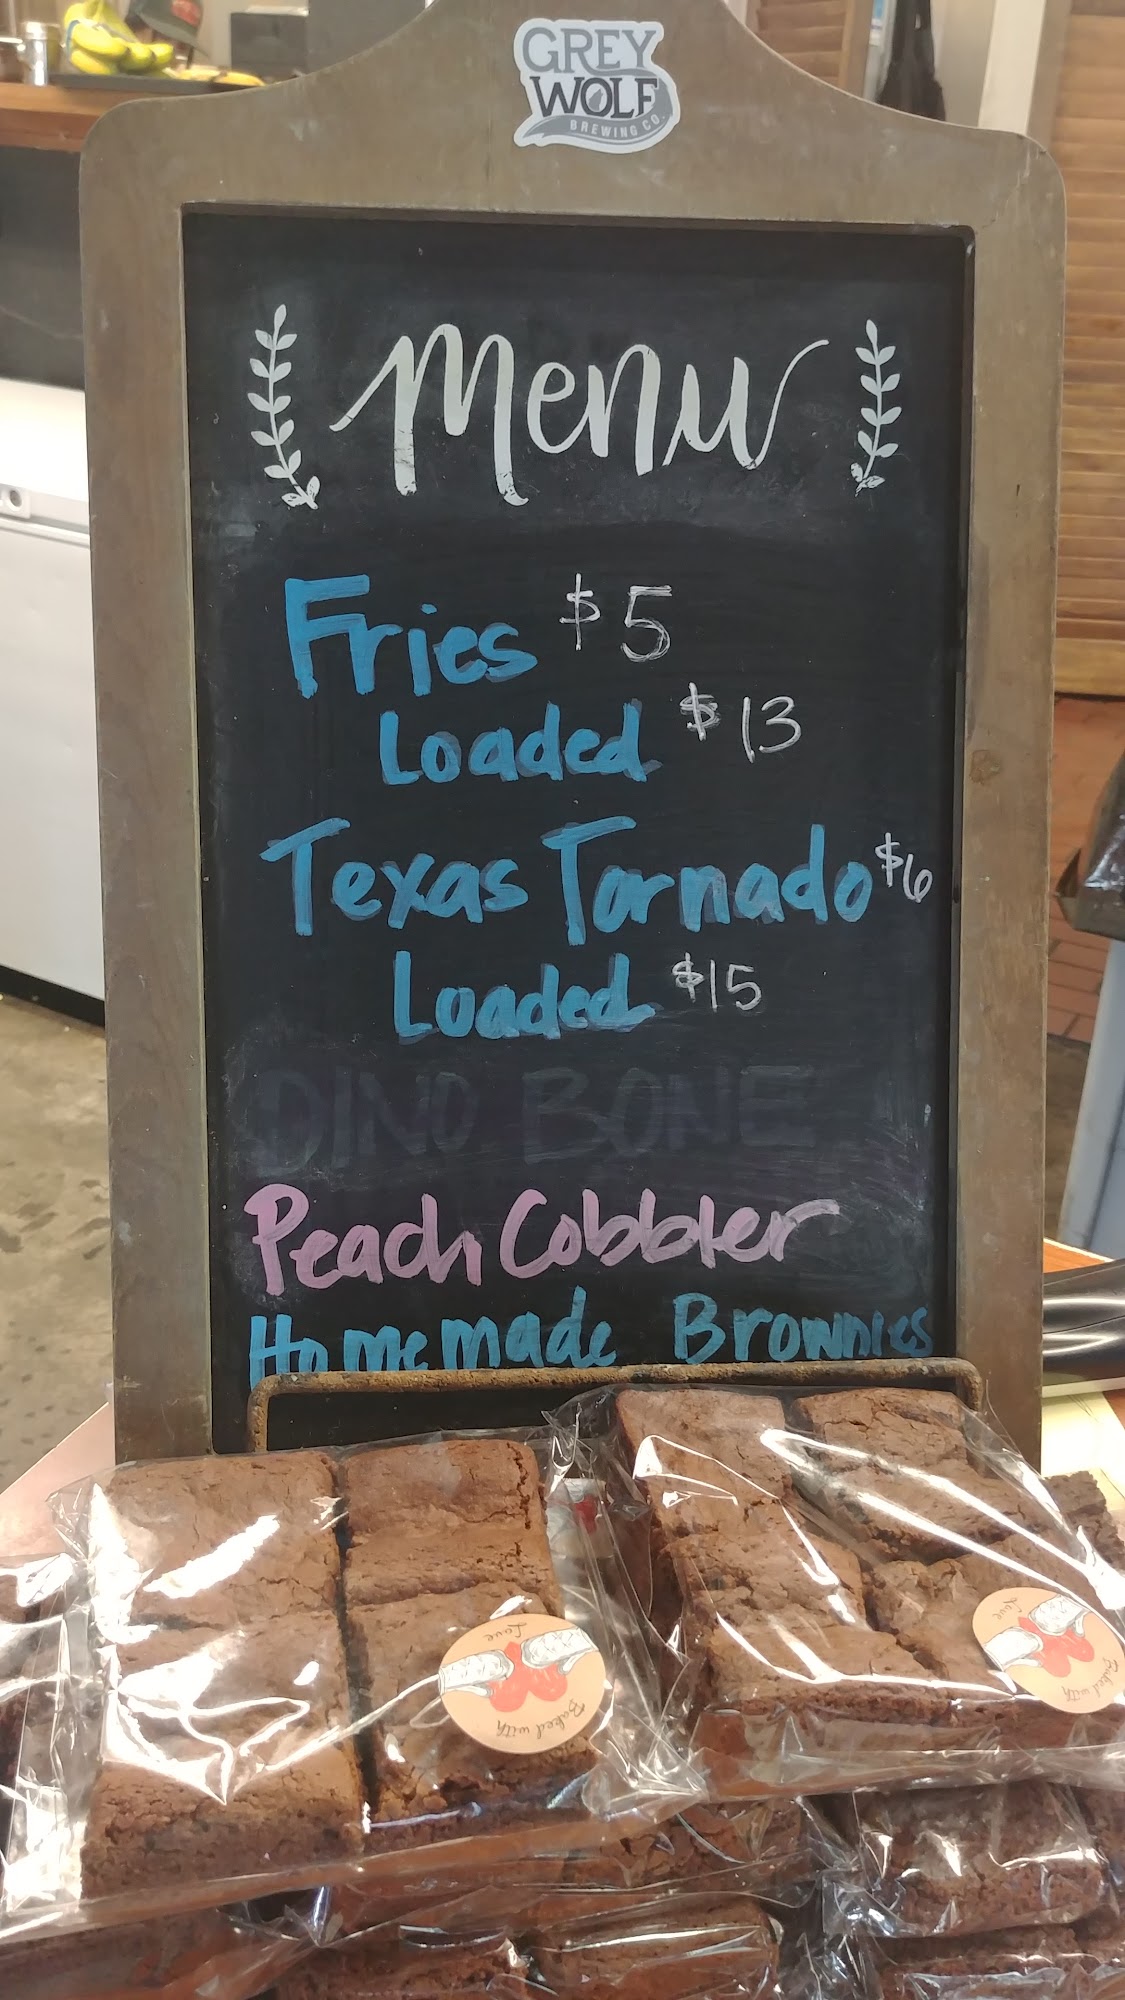 GREY
WOLF
BREWING CO.
Menu
Fries $5
Loaded $13
Texas Tornado $6
Loaded $15
DINO BONE
Peach Cobbler
Homemade Brownies
Baked with
Love
Baked with
Love